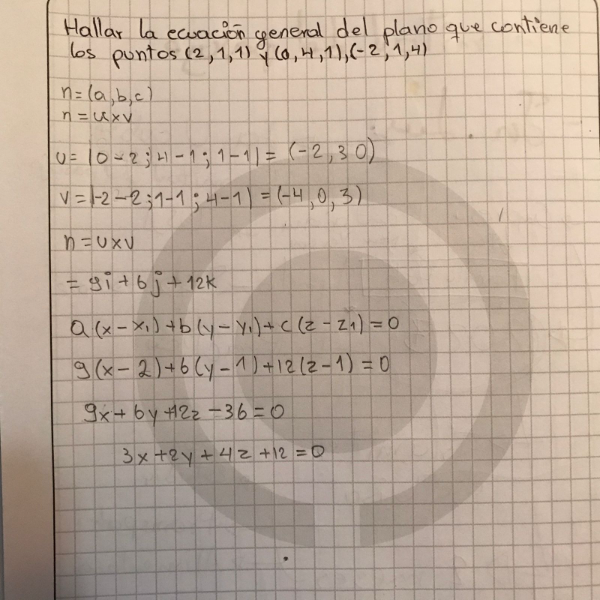 Hallar la ecuación general del plano que contiene
los puntos (2,1,1) y (0,4,1),(-2,1,4)
n=(a,b,c)
n=uxv
u= (0-2;4-1;1-1)= (-2,3 0)
v=(-2-2;1-1;4-1)=(-4,0,3)
n=uxv
= 9i+6j+12k
a(x-x₁)+b(y-y₁)+c(z-z₁)=0
9(x-2)+6(y-1)+12(z-1)=0
9x+6y+12z-36=0
3x+2y+4z+12=0